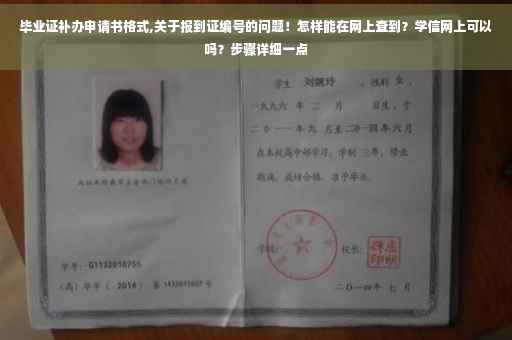 毕业证补办申请书格式,关于报到证编号的问题！怎样能在网上查到？学信网上可以
吗？步骤详细一点
学生 刘婉玲 ，性别 女 ，
一九九六 年 二 月 日生，于
二〇一一年九 月至二〇一四年六月
在本校高中部学习，学制 三年，修业
期满，成绩合格，准予毕业。
学校：
校长：
学号：G1132010755
（高）毕字（ 2014 ）第 1432011027 号
二〇一四年 七 月